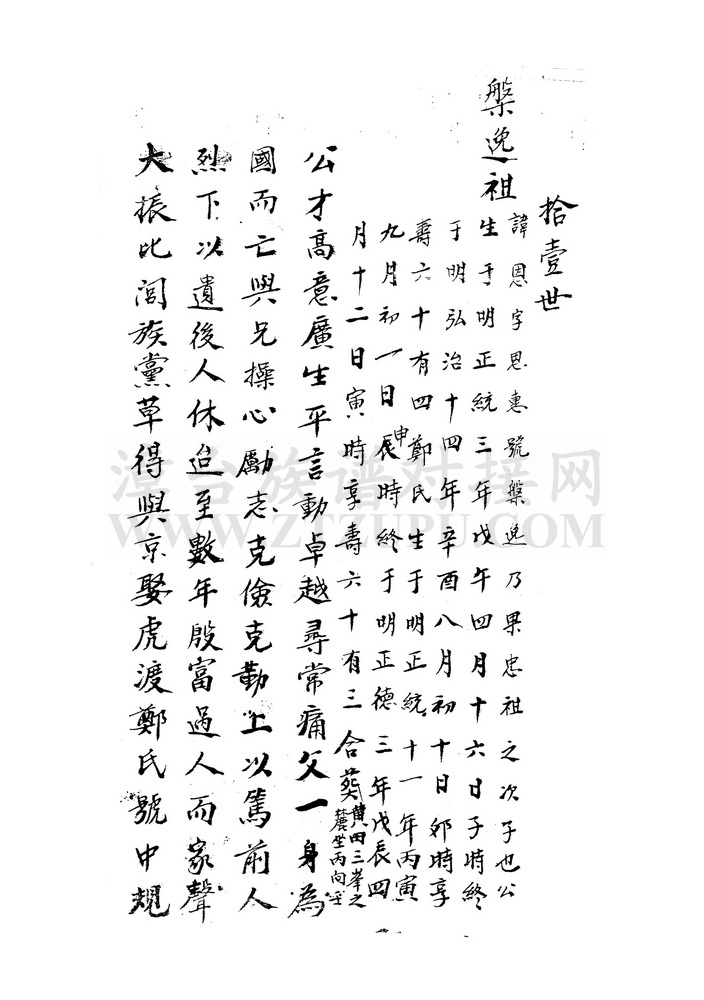 拾壹世
槃逸祖
諱恩字思惠號槃逸乃果忠祖之次子也公
生于明正統三年戊午四月十六日子時終
于明弘治十四年辛酉八月初十日卯時享
壽六十有四鄭氏生于明正統十一年丙寅
九月初一日申辰時終于明正德三年戊辰四
月十二日寅時享壽六十有三合葬黃田三峯之
麓坐丙向壬
公才高意廣生平言動卓越尋常痛父一身為
國而亡與兄操心勵志克儉克勤上以篤前人
烈下以遺後人休迨至數年殷富過人而家聲
大振比閭族黨草得與京娶虎渡鄭氏號中規
漳台族谱对接网
WWW.ZTZUPU.COM